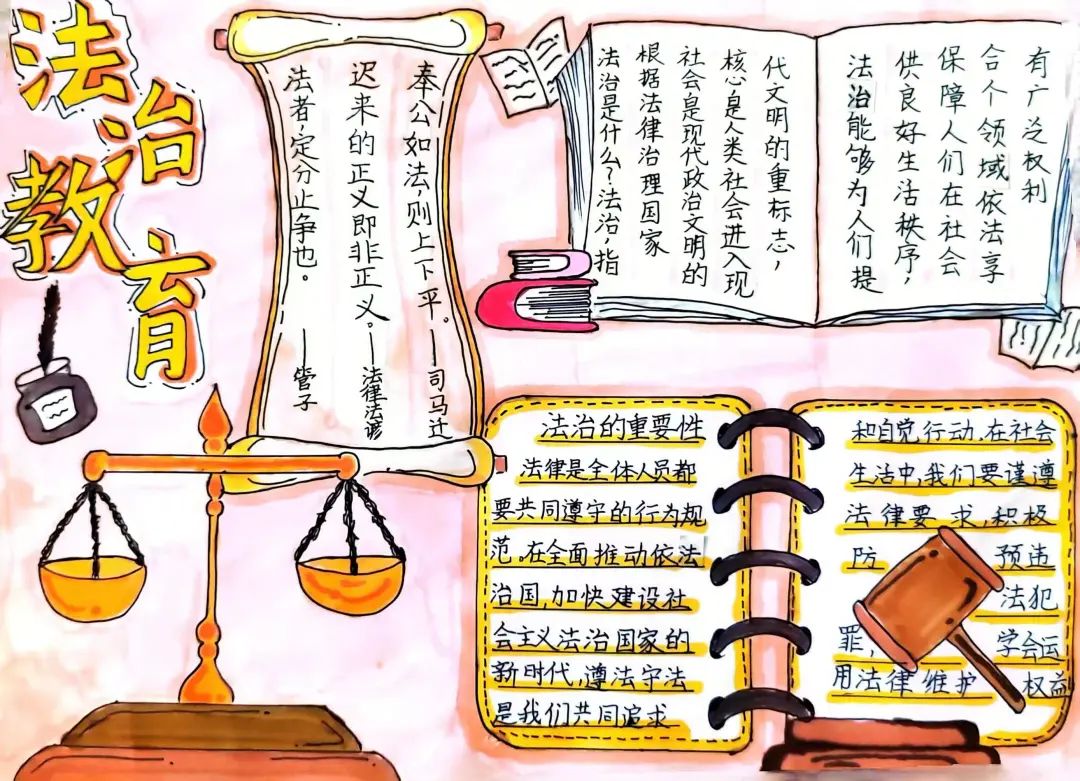 法治教育
奉公如法,则上下平。——司马迁
迟来的正义即非正义。——法律法谚
法者,定分止争也。——管子
法治是什么?法治,指
根据法律治理国家
社会是现代政治文明的
核心,是人类社会进入现
代文明的重标志,
法治能够为人们提
供良好生活秩序,
保障人们在社会
合个领域依法享
有广泛权利
法治的重要性
法律是全体人员都
要共同遵守的行为规
范。在全面推动依法
治国,加快建设社
会主义法治国家的
新时代,遵法守法
是我们共同追求
和自觉行动,在社会
生活中,我们要谨遵
法律要求,积极
防预违
法犯
罪,学会运
用法律维护权益